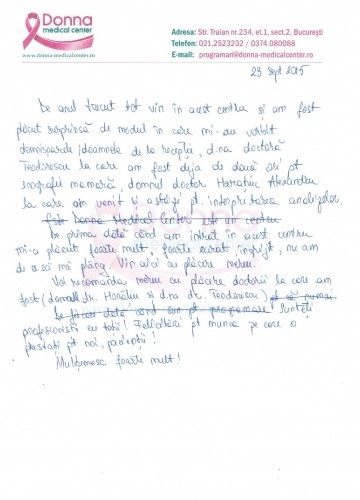 Donna
medical center
Adresa: Str. Traian nr.234, et.1, sect.2, București
Telefon: 021.2523232 / 0374.080088
E-mail: programari@donna-medicalcenter.ro
23 Sept 2015
De anul trecut tot vin în acest centru și am fost
plăcut surprinsă de modul în care mi-au vorbit
domnișoarele/doamnele de la recepție, d.na doctoră
Teodorescu la care am fost deja de două ori pt
ecografii mamară, domnul doctor Alexandru
la care am venit și astăzi pt. interpretarea analizelor.
Este Donna Medical Center este un centru
De prima dată când am intrat în acest centru
mi-a plăcut foarte mult, foarte curat îngrijit, nu am
de ce să mă plâng. Vin aici cu plăcere mereu.
Voi recomanda mereu cu plăcere doctorii la care am
fost (domnul dr. și d.na dr. Teodorescu)
De fiecare dată când sun pt programare sunteți
profesioniști cu toții! Felicitări pt munca pe care o
prestați pt noi, pacienții!
Mulțumesc foarte mult!